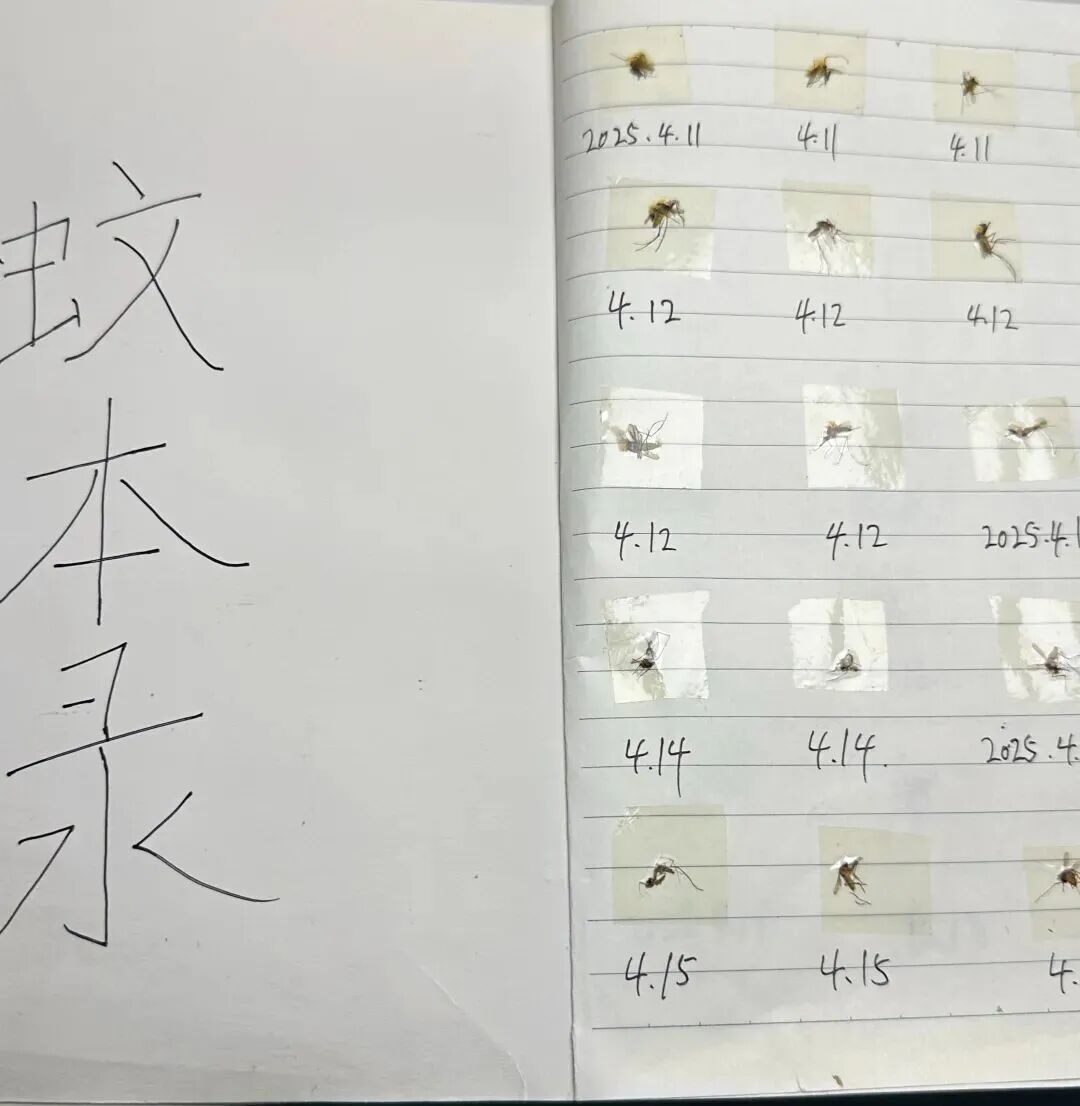 蚊本录
2025.4.11 4.11 4.11
4.12 4.12 4.12
4.12 4.12 2025.4.1
4.14 4.14. 2025.4.
4.15 4.15 4.